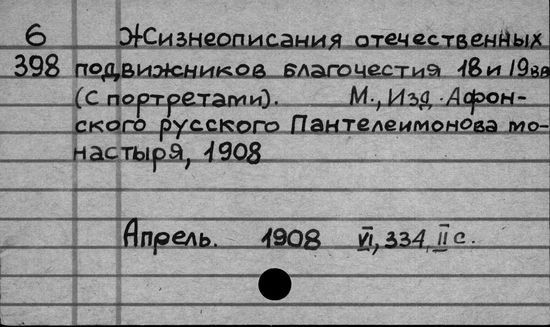 6 Жизнеописания отечественных
398 подвижников благочестия 18 и 19 вв
(с портретами). М., Изд. Афон-
ского русского Пантелеимонова мо-
настыря, 1908
Апрель. 1908 VI, 334, II с.